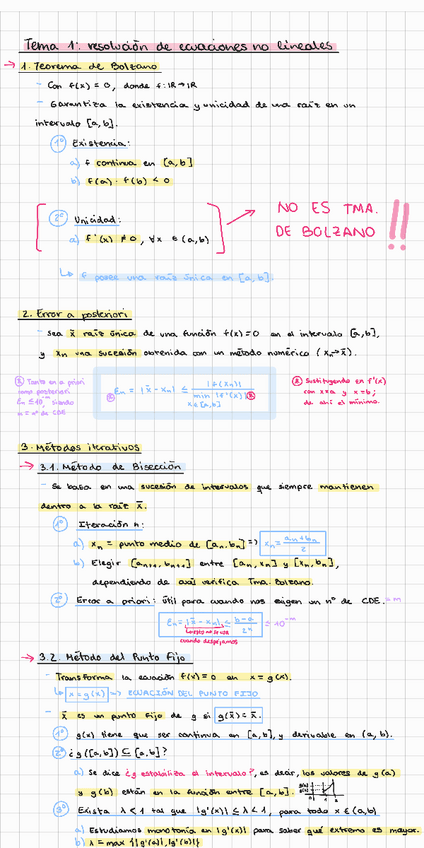 Tema 1: resolución de ecuaciones no lineales
→ 1. Teorema de Bolzano
- Con f(x) = 0, donde f: ℝ→ℝ
- Garantiza la existencia y unicidad de una raíz en un
intervalo [a,b].
1º Existencia:
a) f continua en [a,b]
b) f(a) · f(b) < 0
2º Unicidad:
a) f'(x) ≠ 0, ∀x ∈ (a,b)
NO ES TMA.
DE BOLZANO !!
↳ f posee una raíz única en [a,b].
2. Error a posteriori
- Sea x̄ raíz única de una función f(x)=0 en el intervalo [a,b],
y xₙ una sucesión obtenida con un método numérico (xₙ→x̄).
Tanto en a priori
como posteriori
Eₙ ≤ 10⁻ᵐ, siendo
m = nº de CDE
Eₙ = |x̄ - xₙ| ≤ |f(xₙ)| / min |f'(x)|
x∈[a,b]
Sustituyendo en f'(x)
con x=a y x=b;
de ahí el mínimo.
3. Métodos iterativos
→ 3.1. Método de Bisección
- Se basa en una sucesión de intervalos que siempre mantienen
dentro a la raíz x̄.
1º Iteración n:
a) xₙ = punto medio de [aₙ, bₙ] => xₙ = (aₙ+bₙ)/2
b) Elegir [aₙ₊₁, bₙ₊₁] entre [aₙ, xₙ] y [xₙ, bₙ],
dependiendo de cuál verifica Tma. Bolzano.
2º Error a priori: útil para cuando nos exigen un nº de CDE. = m
Eₙ = |x̄ - xₙ| ≤ (b-a)/2ⁿ = 10⁻ᵐ
cuando despejamos
→ 3.2. Método del Punto Fijo
- Transforma la ecuación f(x) = 0 en x = g(x).
↳ x = g(x) => ECUACIÓN DEL PUNTO FIJO
- x̄ es un punto fijo de g si g(x̄) = x̄.
1º g(x) tiene que ser continua en [a,b], y derivable en (a,b).
2º ¿g([a,b]) ⊆ [a,b]?
a) Se dice ¿g estabiliza el intervalo?, es decir, los valores de g(a)
y g(b) están en la función entre [a,b].
3º Exista λ < 1 tal que |g'(x)| ≤ λ < 1, para todo x ∈ (a,b)
a) Estudiamos monotonía en |g'(x)| para saber qué extremo es mayor.
b) λ = max {|g'(a)|, |g'(b)|}